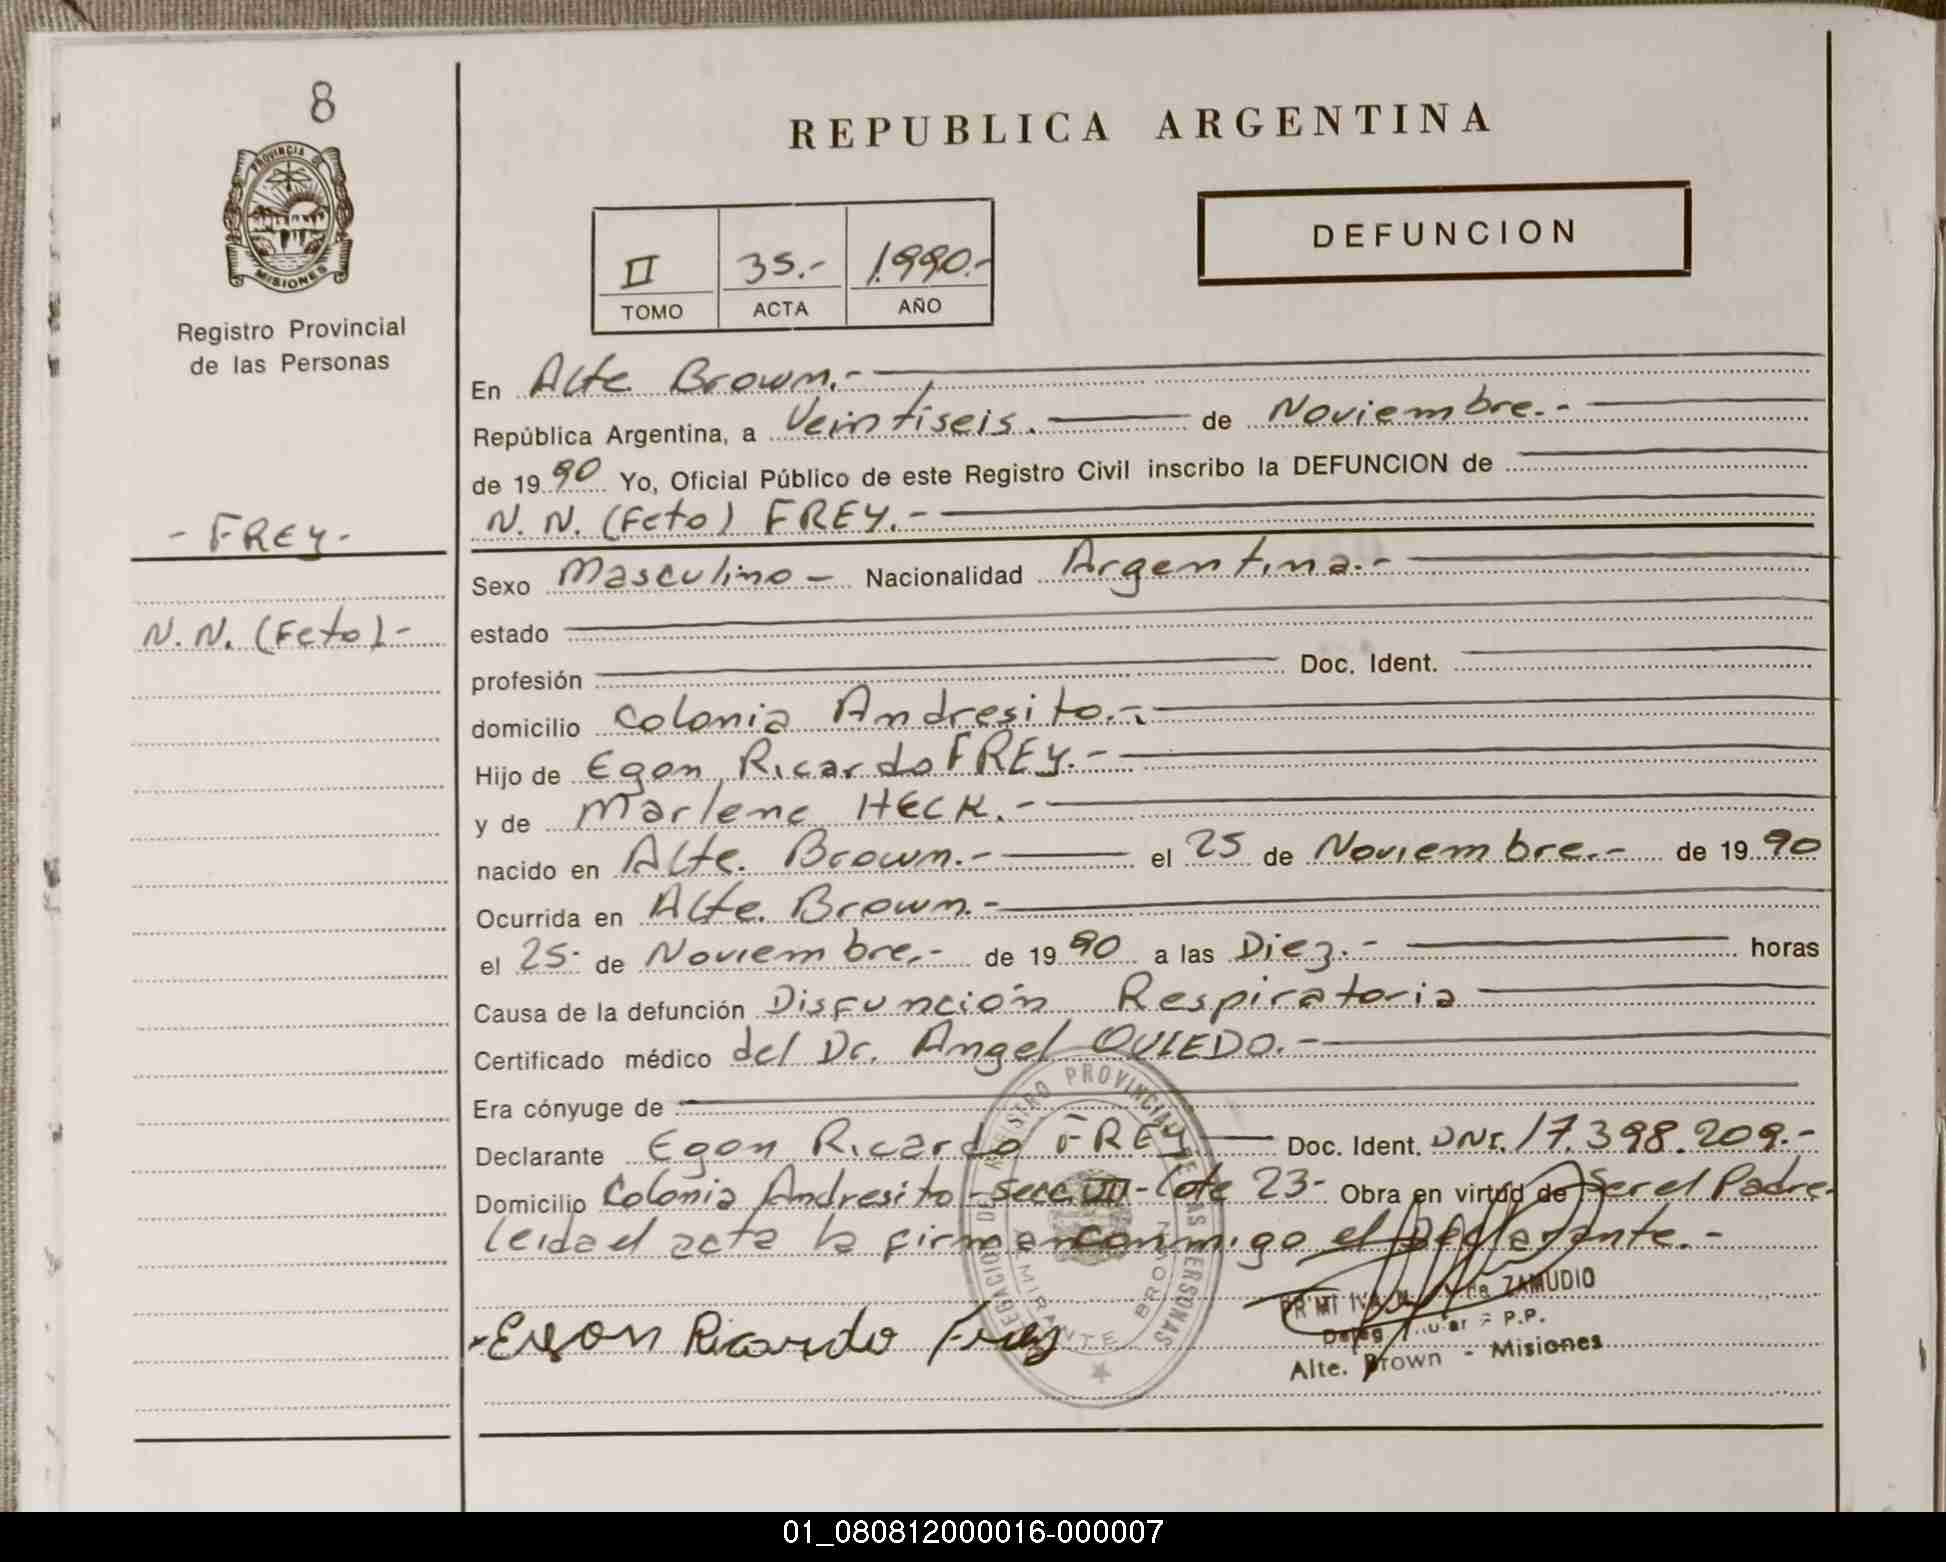 8
PROVINCIA DE
MISIONES
Registro Provincial
de las Personas
- FREY -
N. N. (Feto) -
REPUBLICA ARGENTINA
II 35.- 1.990.-
TOMO ACTA AÑO
DEFUNCION
En Alte. Brown.-
República Argentina, a Veintiseis. de Noviembre.-
de 1990 Yo, Oficial Público de este Registro Civil inscribo la DEFUNCION de
N. N. (Feto) FREY.-
Sexo Masculino - Nacionalidad Argentina.-
estado
profesión Doc. Ident.
domicilio Colonia Andresito.-
Hijo de Egon Ricardo FREY.-
y de Marlene HECK.-
nacido en Alte. Brown.- el 25 de Noviembre.- de 1990
Ocurrida en Alte. Brown.-
el 25- de Noviembre.- de 1990 a las Diez.- horas
Causa de la defunción Disfunción Respiratoria
Certificado médico del Dr. Angel OVIEDO.-
Era cónyuge de
Declarante Egon Ricardo FREY Doc. Ident. DNI. 17.398.209.-
Domicilio Colonia Andresito - Secc. VIII - Lote 23- Obra en virtud de Ser el Padre-
leida el acta la firman conmigo el Declarante.-
Egon Ricardo Frey
REGISTRO PROVINCIAL DE LAS PERSONAS
DELEGACION
ALMIRANTE BROWN
ZAMUDIO
P.P.
Alte. Brown - Misiones
01_080812000016-000007